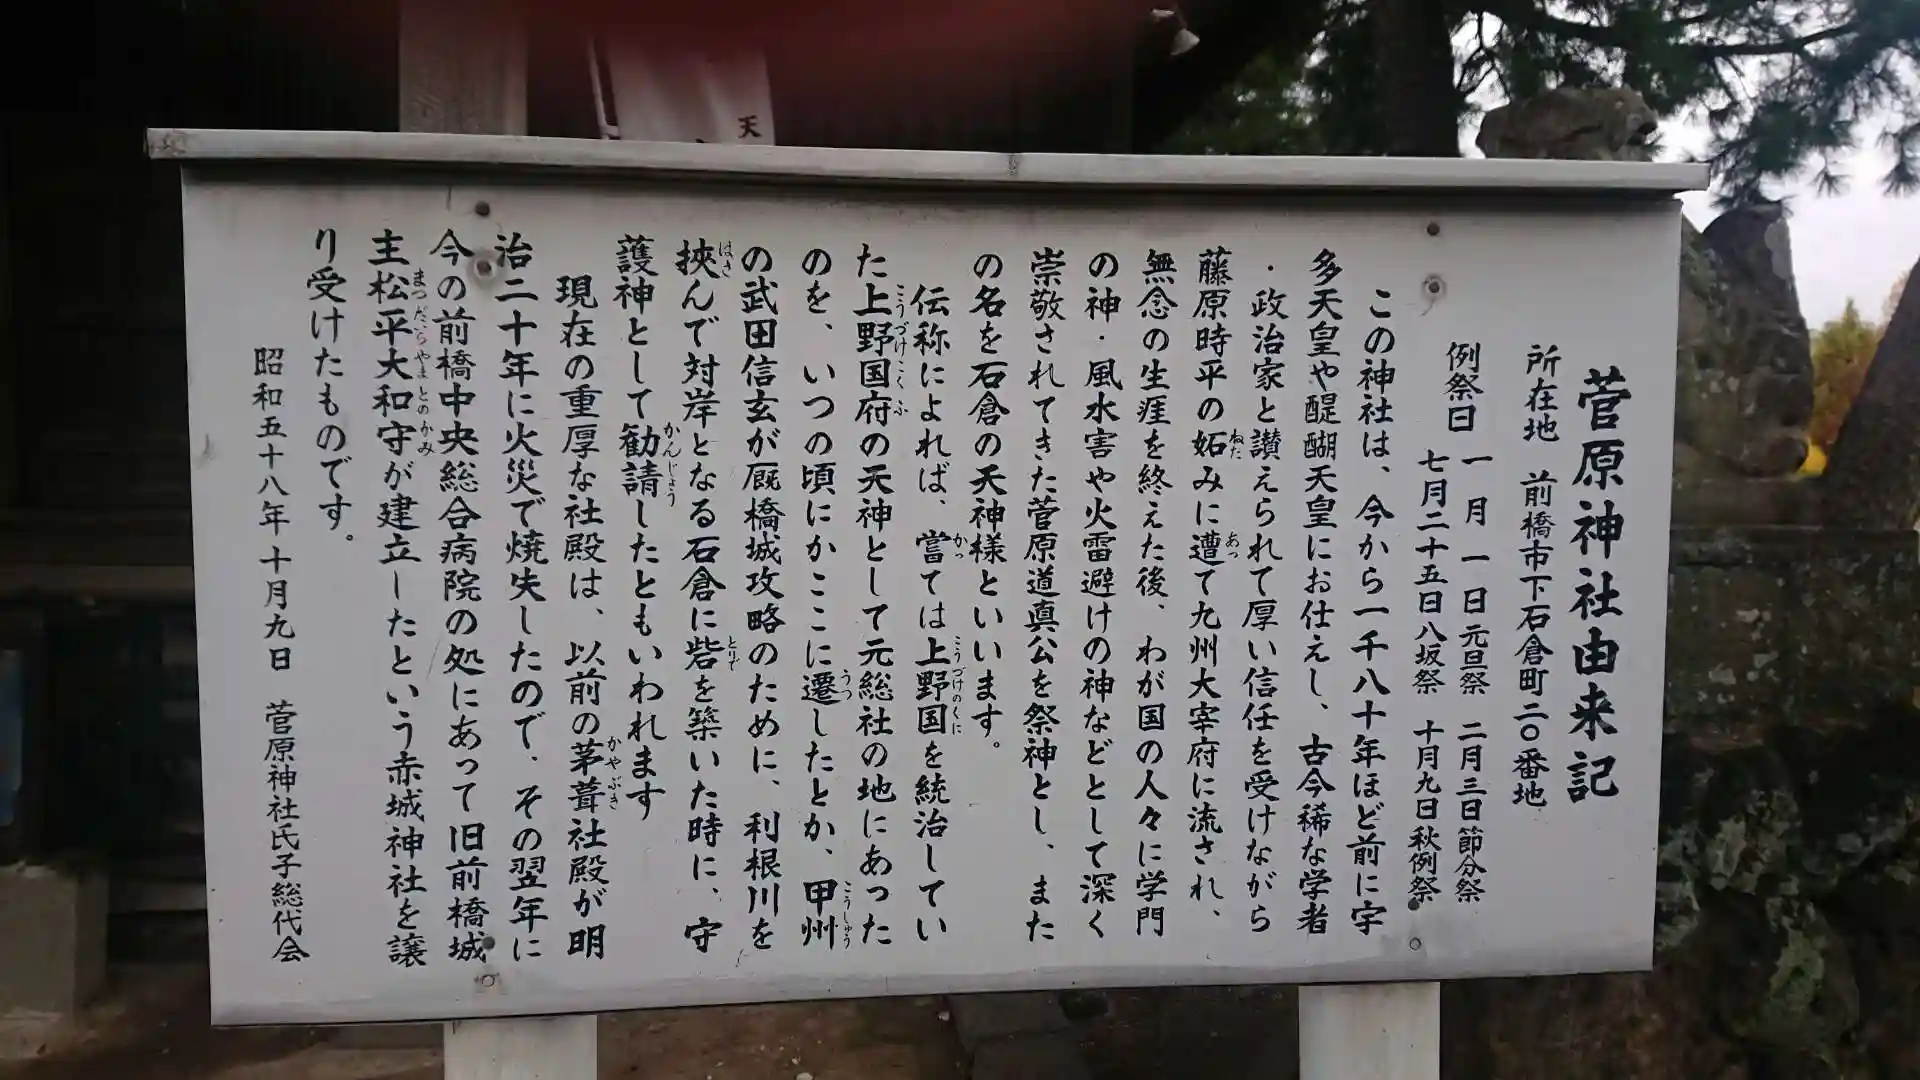 天
菅原神社由来記
所在地 前橋市下石倉町二〇番地
例祭日 一月一日元旦祭 二月三日節分祭
七月二十五日八坂祭 十月九日秋例祭
この神社は、今から一千八十年ほど前に宇
多天皇や醍醐天皇にお仕えし、古今稀な学者
・政治家と讃えられて厚い信任を受けながら
藤原時平の妬みに遭て九州大宰府に流され、
無念の生涯を終えた後、わが国の人々に学門
の神・風水害や火雷避けの神などとして深く
崇敬されてきた菅原道真公を祭神とし、また
の名を石倉の天神様といいます。
伝称によれば、嘗ては上野国を統治してい
た上野国府の天神として元総社の地にあった
のを、いつの頃にかここに遷したとか、甲州
の武田信玄が厩橋城攻略のために、利根川を
挾んで対岸となる石倉に砦を築いた時に、守
護神として勧請したともいわれます
現在の重厚な社殿は、以前の茅葺社殿が明
治二十年に火災で焼失したので、その翌年に
今の前橋中央総合病院の処にあって旧前橋城
主松平大和守が建立したという赤城神社を譲
り受けたものです。
昭和五十八年十月九日 菅原神社氏子総代会